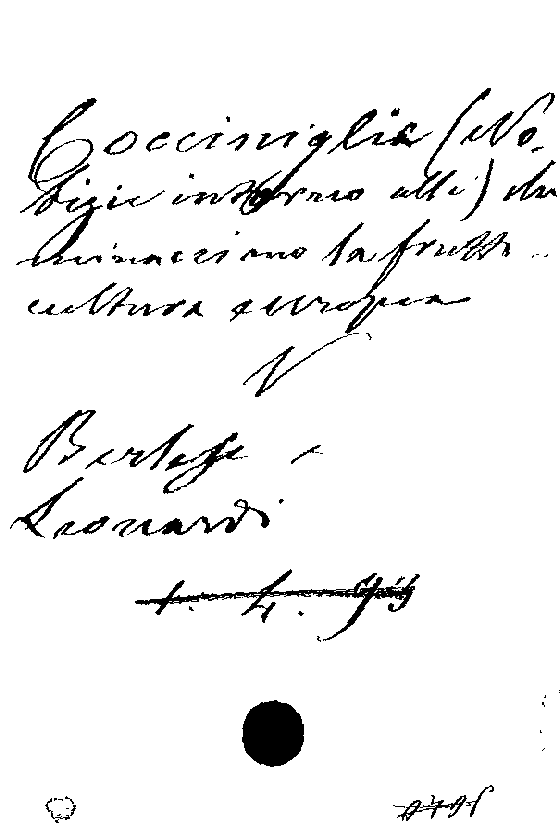 Cocciniglie (No-
tizie intorno alle) che
minacciano la frutti-
cultura europea
V
Berlese e
Leonardi